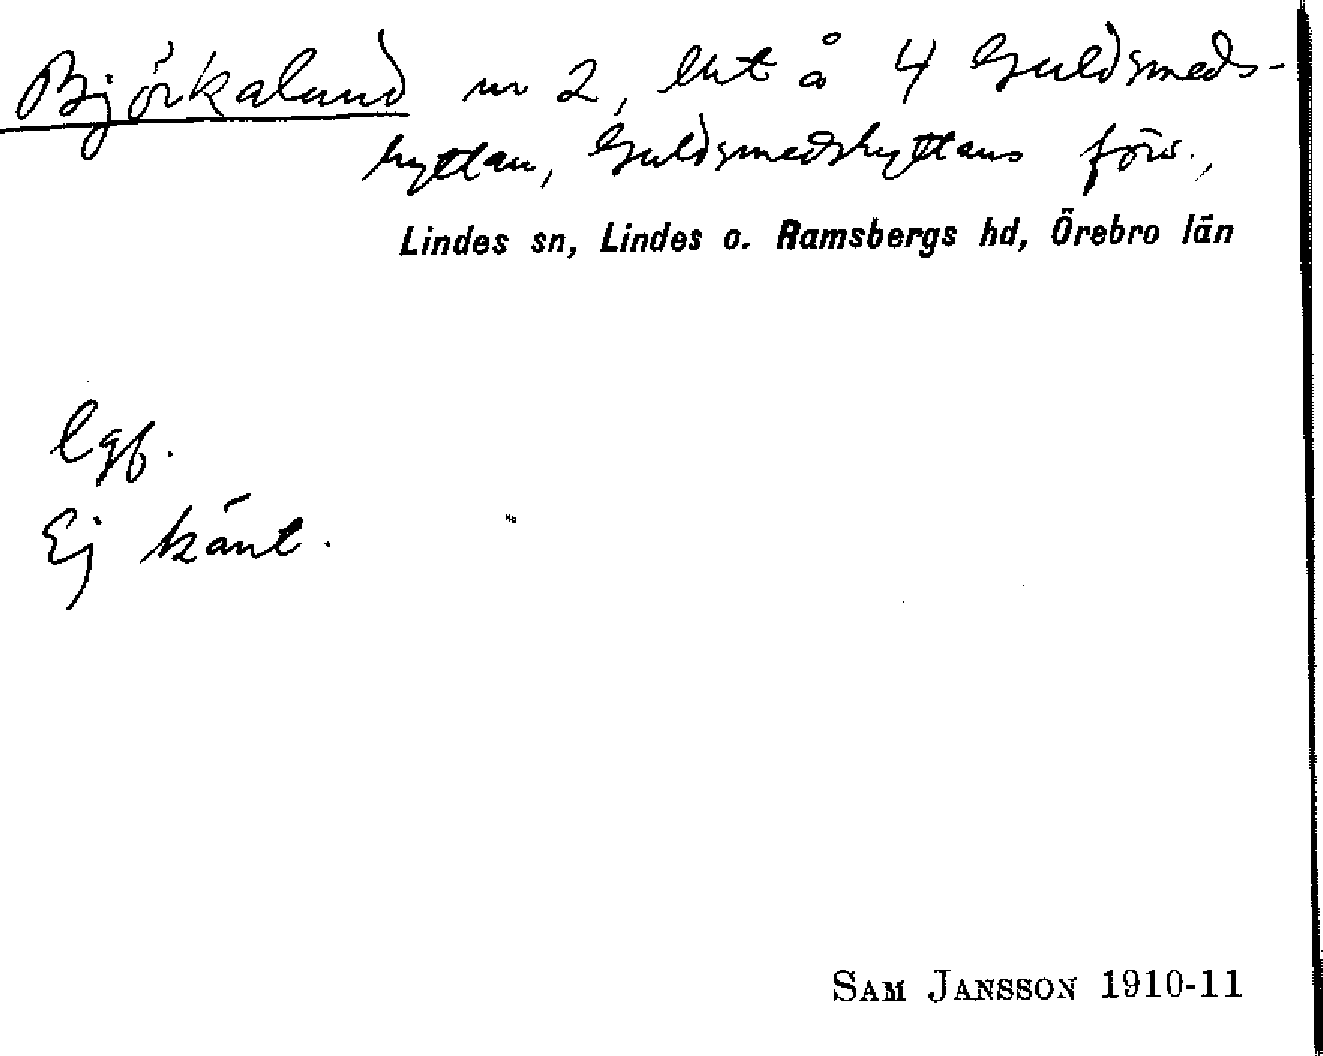 Björkalund nr 2, lht å 4 Guldsmeds-
hyttan, Guldsmedshyttans förs.,
Lindes sn, Lindes o. Ramsbergs hd, Örebro län
lgf.
Ej känt.
SAM JANSSON 1910-11